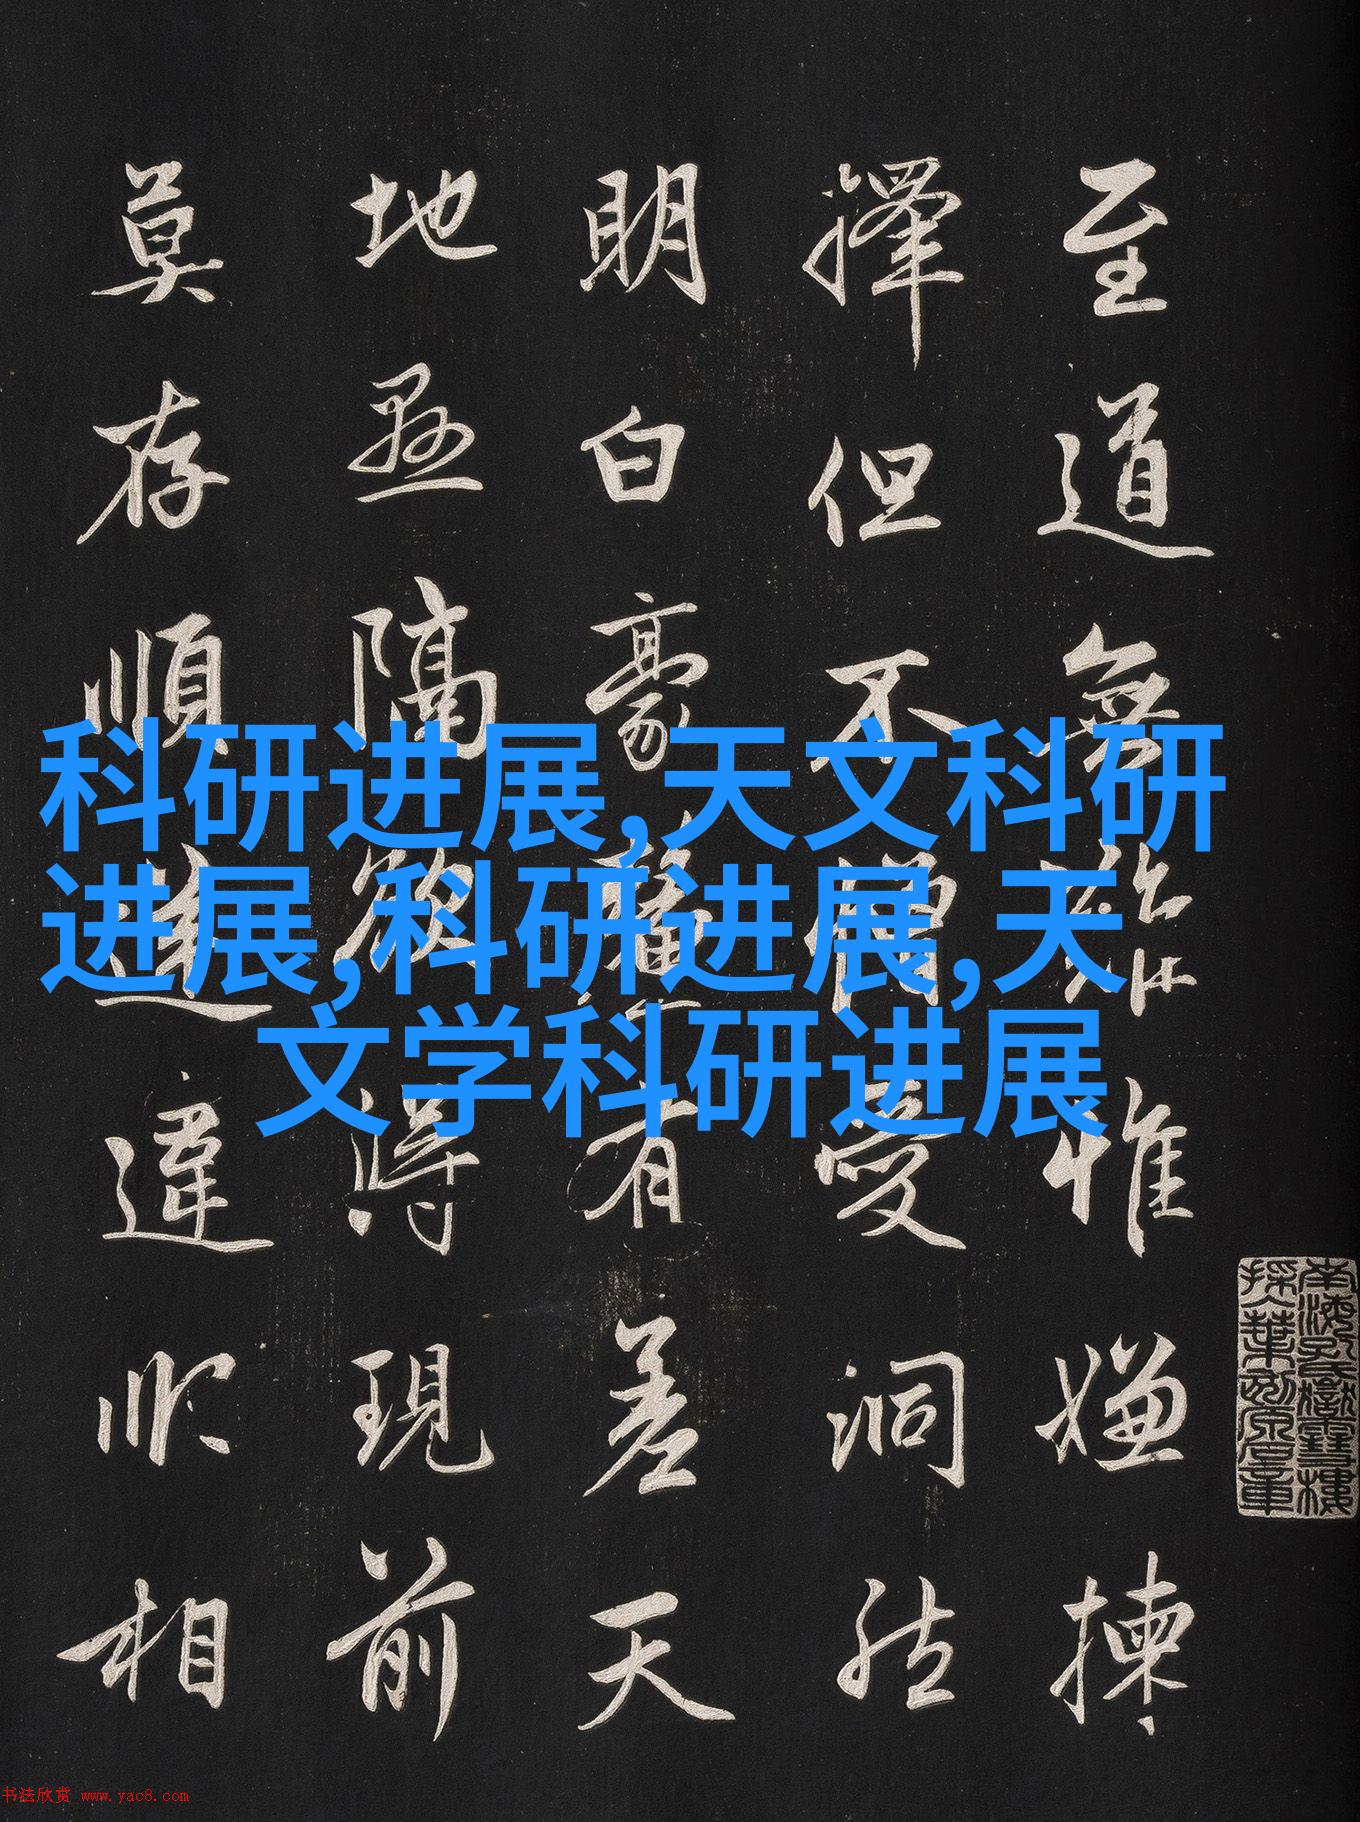 科研进展,天文科研
进展,科研进展,天
文学科研进展
至道無難惟嫌揀
擇但不憎愛洞然
明白豪釐有差天
地懸隔欲得現前
莫存順逆違順相
南海孔氏嶽雪樓
书法欣赏 www.yac8.com